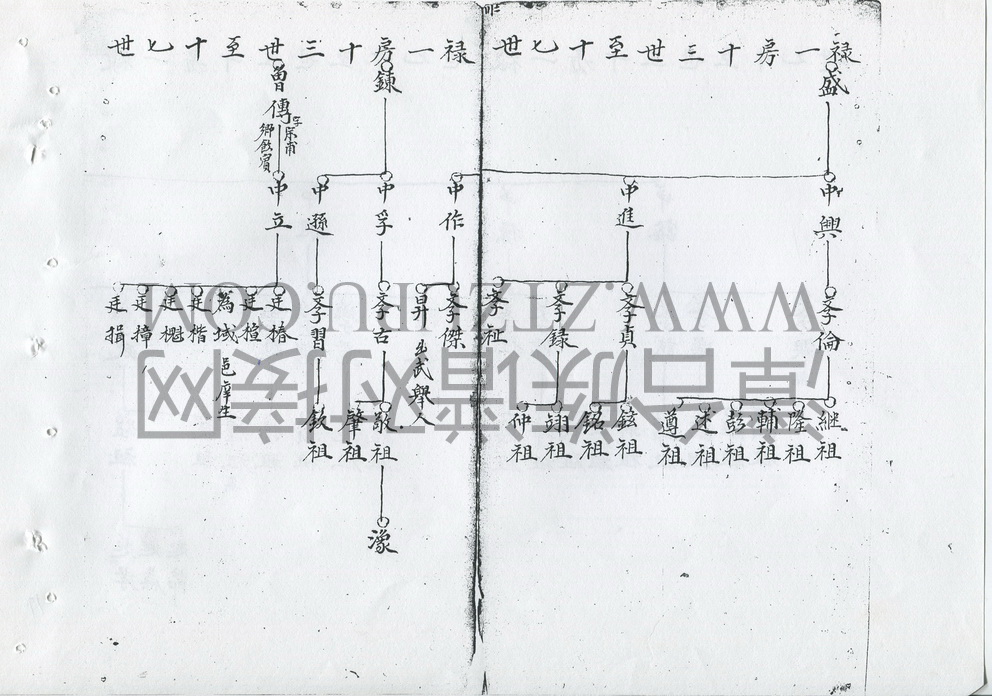 禄一房十三世至十七世
盛
中興
中進
中作
孝倫
孝貞
孝録
孝祉
孝傑
昇 出武舉人
継祖
隆祖
輔祖
彭祖
述祖
遵祖
鉉祖
銘祖
翊祖
仲祖
禄一房十三世至十七世
鍊
曾傳 字宗甫 鄉飲賓
中孚
中遜
中立
孝古
孝習
廷椿
廷楦
為域 邑庠生
廷楷
廷樾
廷樟
廷揖
敬祖
肇祖
欽祖
濠
WWW.ZTZUPJHU.COM
漳台族谱对接网